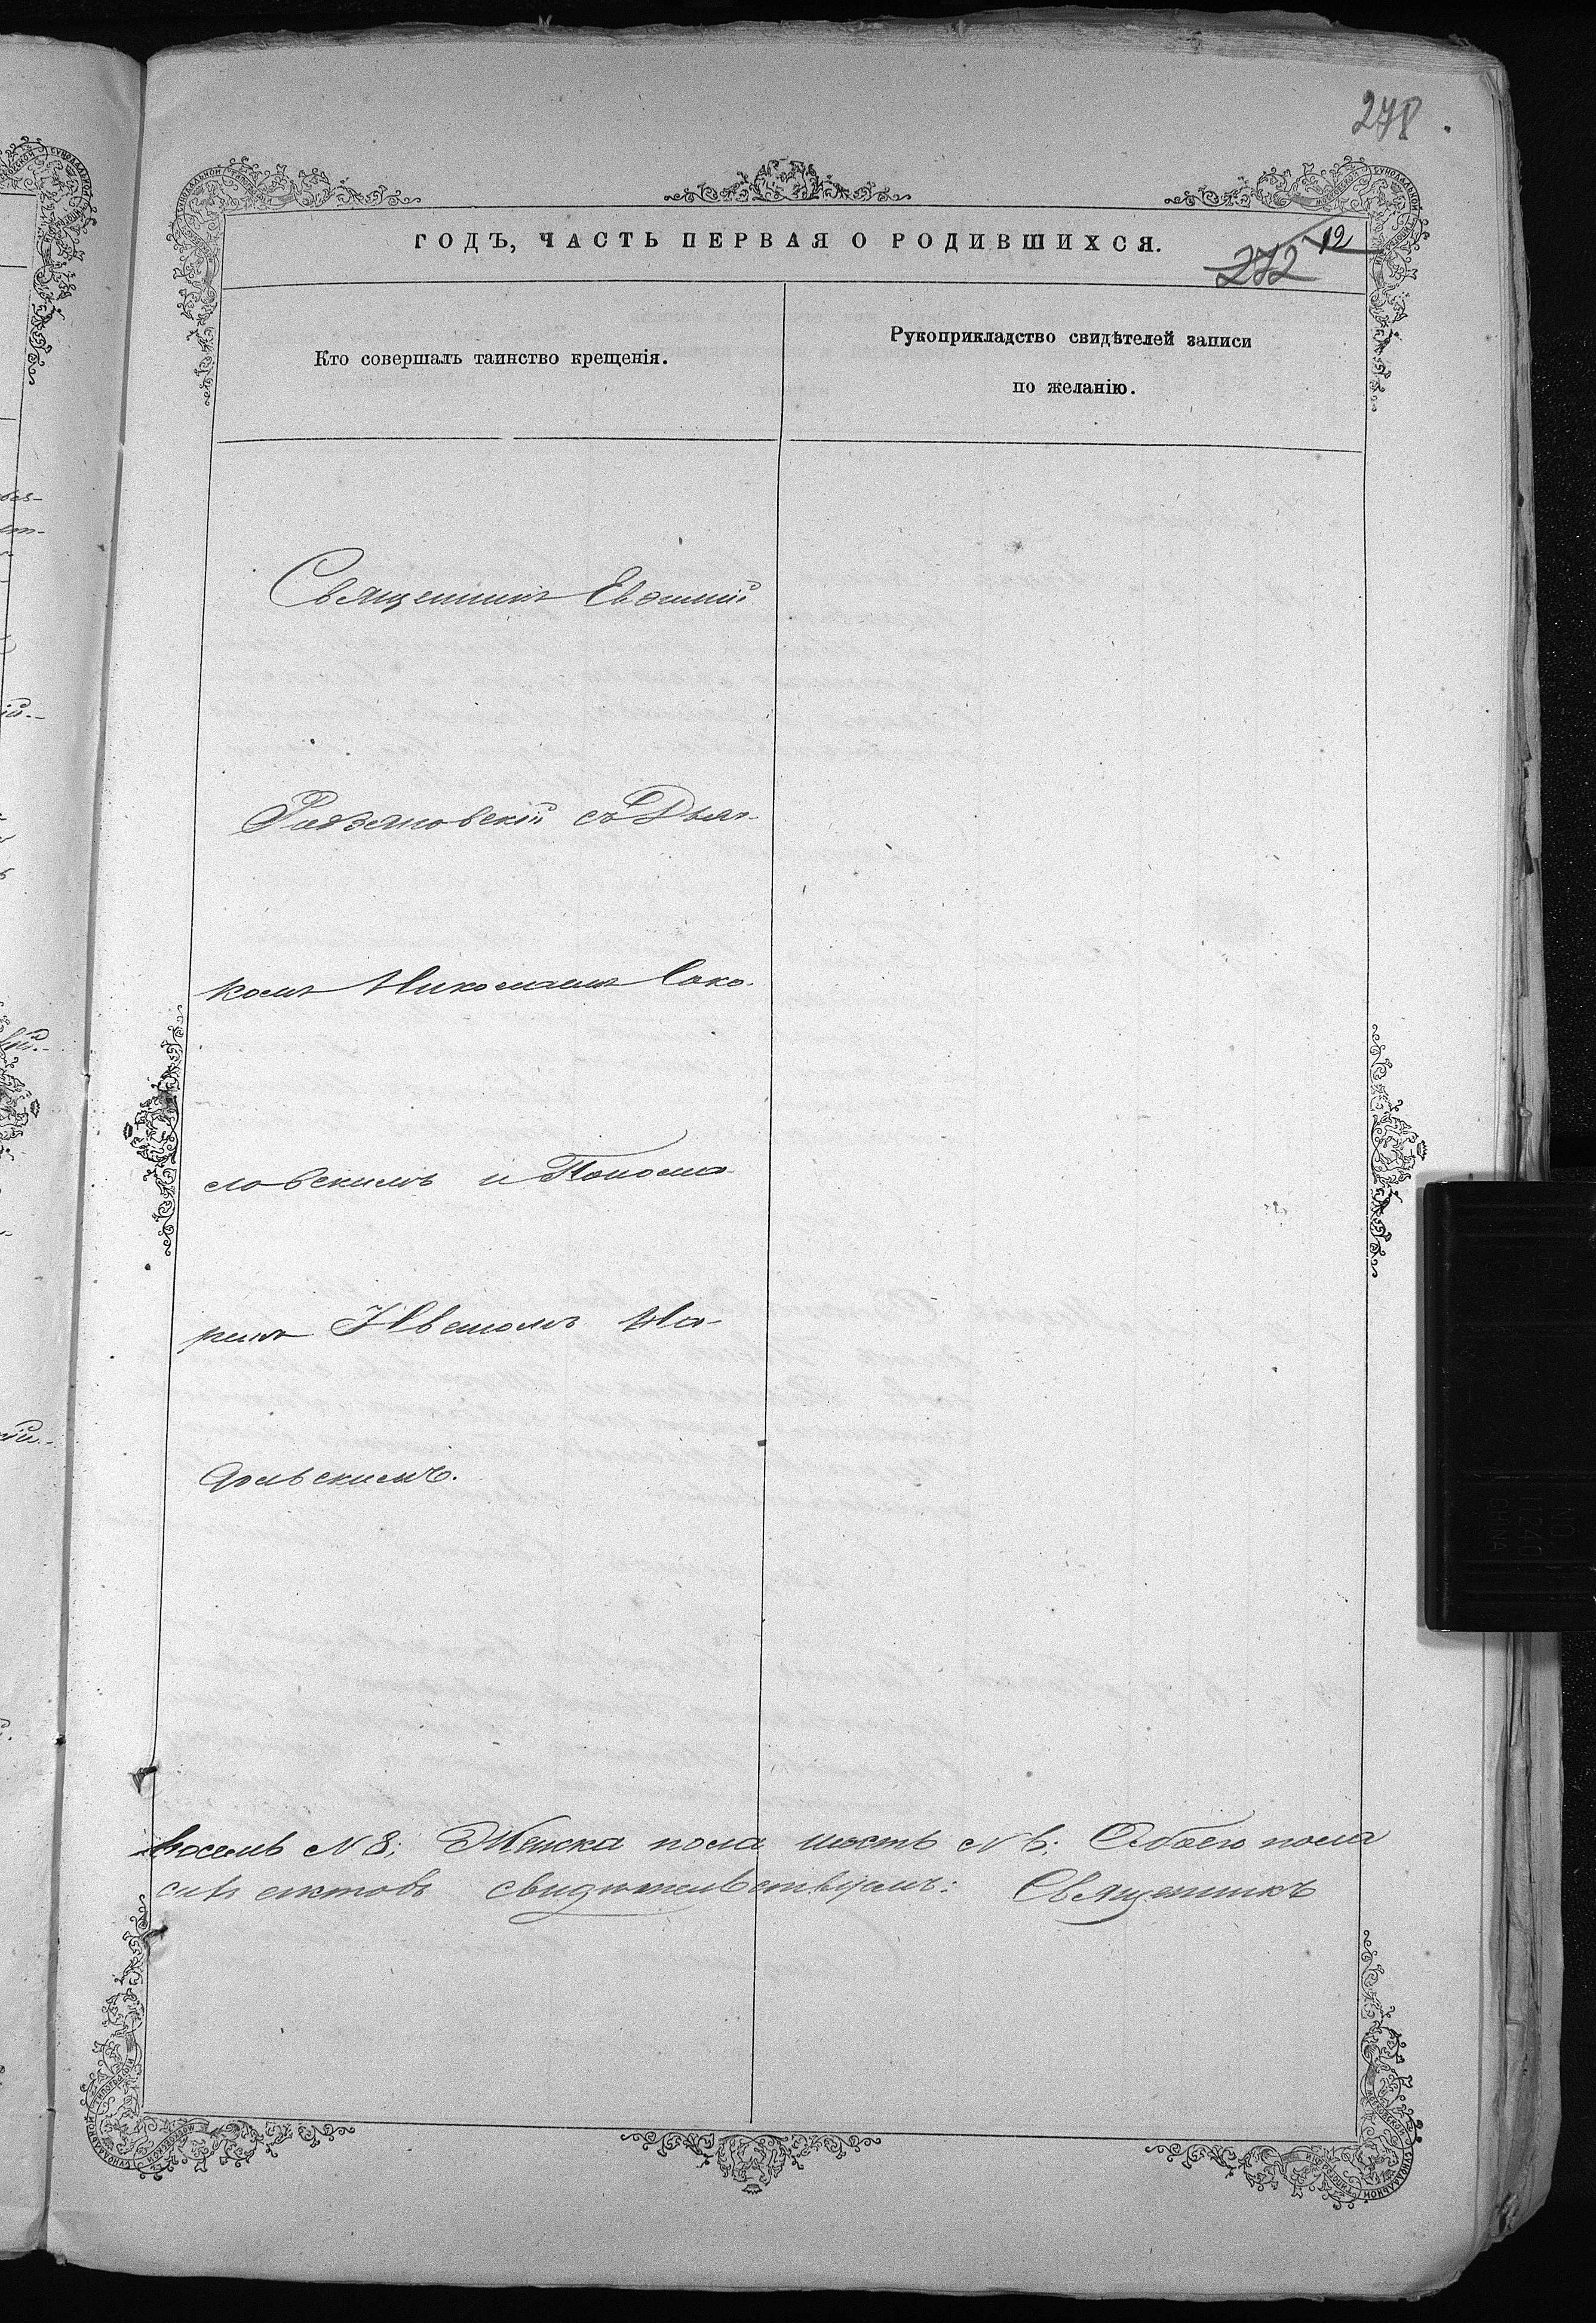 278.
ГОДЪ, ЧАСТЬ ПЕРВАЯ О РОДИВШИХСЯ.
272 12
Кто совершалъ таинство крещенія.
Рукоприкладство свидѣтелей записи
по желанію.
Священникъ Евѳимій
Рязановскій съ Дьяч-
комъ Николаемъ Соко-
ловскимъ и Понома-
ремъ Иваномъ На-
дольскимъ.
восемь N 8; Женска пола шесть N 6; Обоего пола
сихъ актовъ свидѣтельствуемъ: Священникъ